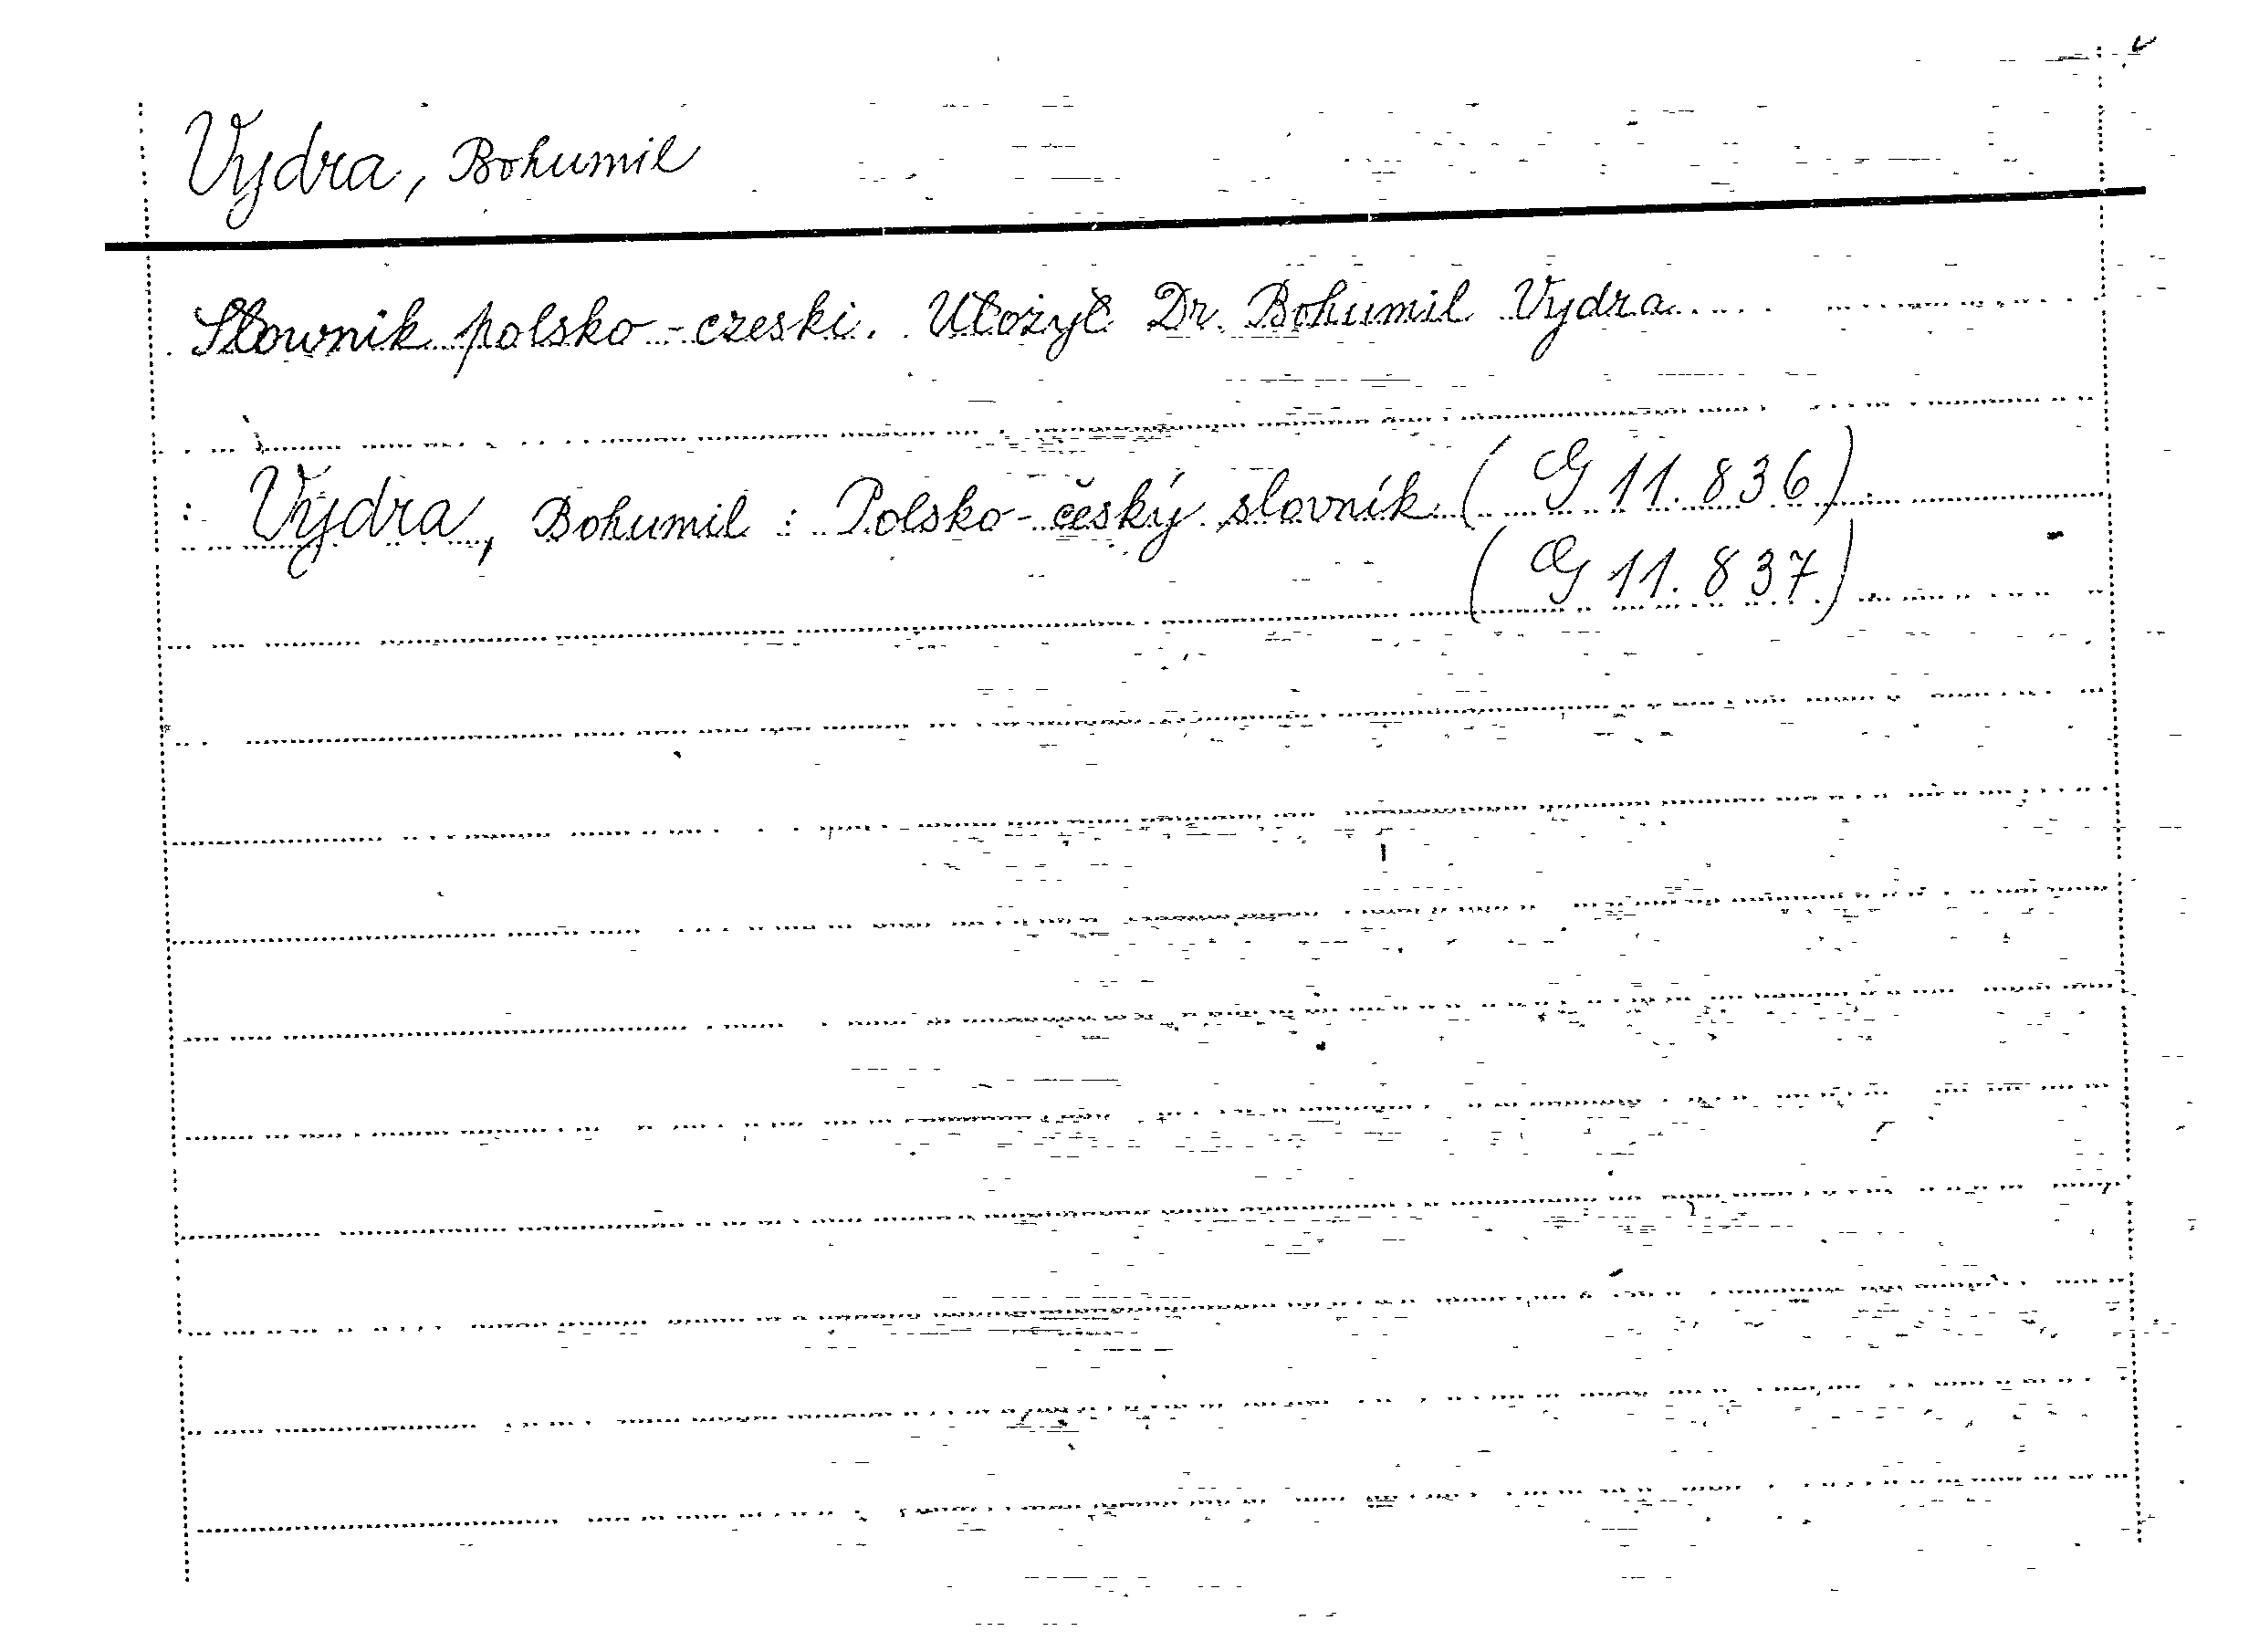 Vydra, Bohumil
Słownik polsko-czeski. Ułożył Dr. Bohumil Vydra
v
: Vydra, Bohumil : Polsko-český slovník (G 11.836)
(G 11.837)